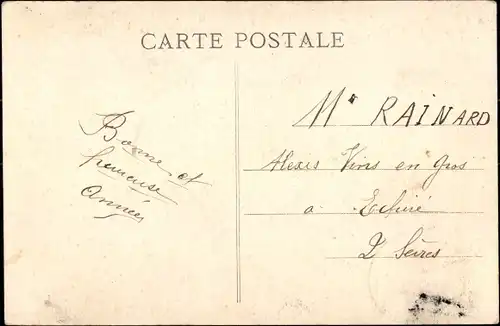 CARTE POSTALE
Bonne et
heureuse
année
Mr RAINARD
Alexis Vins en Gros
a Echiré
2 Sèvres